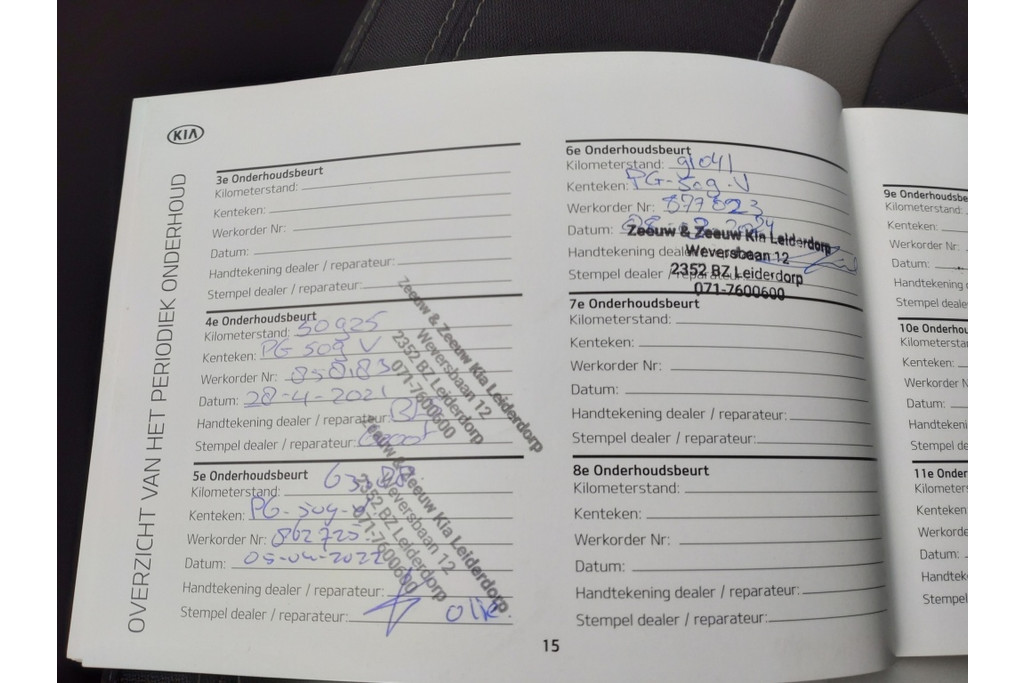 KIA
OVERZICHT VAN HET PERIODIEK ONDERHOUD
3e Onderhoudsbeurt
Kilometerstand:
Kenteken:
Werkorder Nr:
Datum:
Handtekening dealer / reparateur:
Stempel dealer / reparateur:
4e Onderhoudsbeurt
Kilometerstand: 50925
Kenteken: PG 509 V
Werkorder Nr: 858183
Datum: 28-4-2021
Handtekening dealer / reparateur:
Stempel dealer / reparateur:
Zeeuw & Zeeuw Kia Leiderdorp
Weversbaan 12
2352 BZ Leiderdorp
071-7600600
5e Onderhoudsbeurt
Kilometerstand:
Kenteken: PG-509-V
Werkorder Nr: 862725
Datum: 05-04-2022
Handtekening dealer / reparateur:
Stempel dealer / reparateur: olie.
Zeeuw & Zeeuw Kia Leiderdorp
Weversbaan 12
2352 BZ Leiderdorp
071-7600600
6e Onderhoudsbeurt
Kilometerstand: 91041
Kenteken: PG-509-V
Werkorder Nr: 877823
Datum:
Handtekening dealer
Stempel dealer / reparateur:
Zeeuw & Zeeuw Kia Leiderdorp
Weversbaan 12
2352 BZ Leiderdorp
071-7600600
7e Onderhoudsbeurt
Kilometerstand:
Kenteken:
Werkorder Nr:
Datum:
Handtekening dealer / reparateur:
Stempel dealer / reparateur:
8e Onderhoudsbeurt
Kilometerstand:
Kenteken:
Werkorder Nr:
Datum:
Handtekening dealer / reparateur:
Stempel dealer / reparateur:
15
9e Onderhoudsbe
Kilometerstand:
Kenteken:
Werkorder Nr:
Datum:
Handtekening
Stempel deale
10e Onderhou
Kilometerstan
Kenteken:
Werkorder N
Datum:
Handtekenin
Stempel de
11e Onder
Kilometer
Kenteken
Werkorde
Datum:
Handtek
Stempel